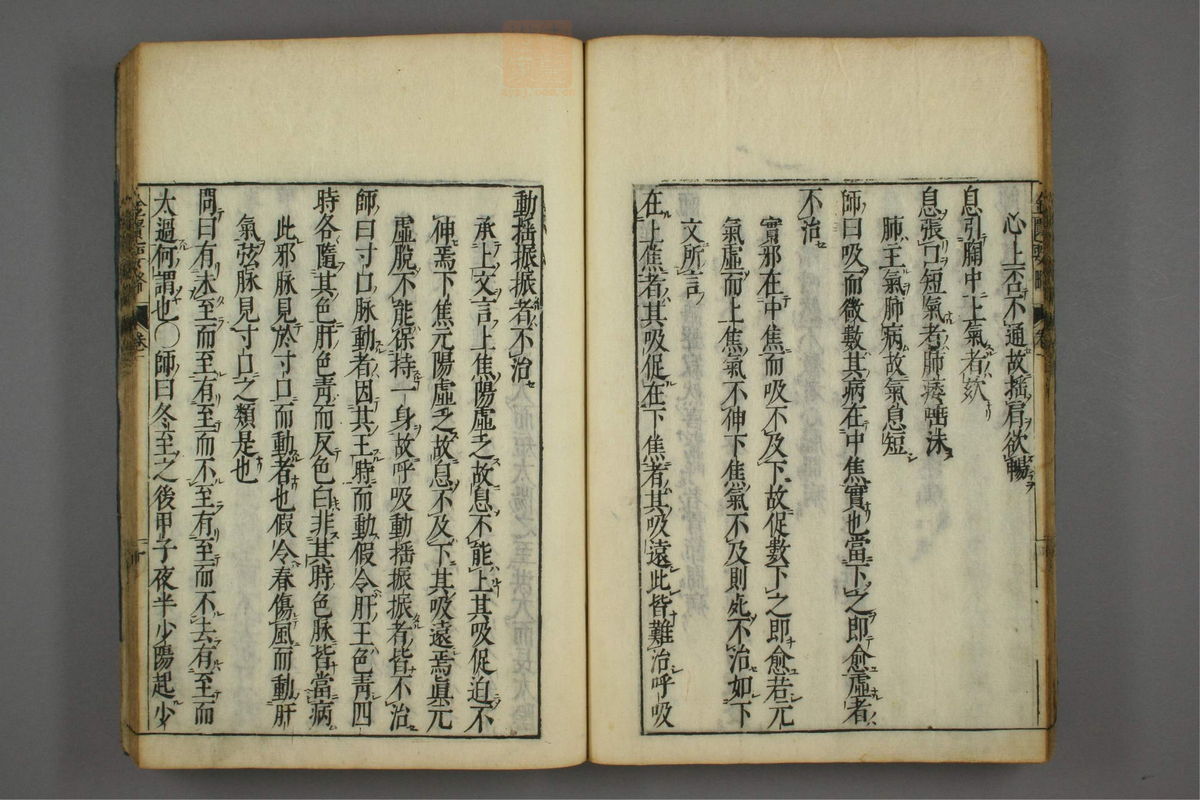 心上否不通故揺肩欲暢
息引胸中上氣者欬
息張口短氣者肺痿唾沫
肺主氣肺病故氣息短
師曰吸而微數其病在中焦實也當下之即愈虛者
不治
實邪在中焦而吸不及下故促數下之即愈若元
氣虛而上焦氣不伸下焦氣不及則死不治如下
文所言
在上焦者其吸促在下焦者其吸遠此皆難治呼吸
動揺振振者不治
承上文言上焦陽虛乏故息不能上其吸促迫不
伸焉下焦元陽虛乏故息不及下其吸遠焉眞元
虛脫不能保持一身故呼吸動揺振振者皆不治
師曰寸口脉動者因其王時而動假令肝王色靑四
時各隨其色肝色靑而反色白非其時色脉皆當病
此邪脉見於寸口而動者也假令春傷風而動肝
氣弦脉見寸口之類是也
問曰有未至而至有至而不至有至而不去有至而
太過何謂也○師曰冬至之後甲子夜半少陽起少